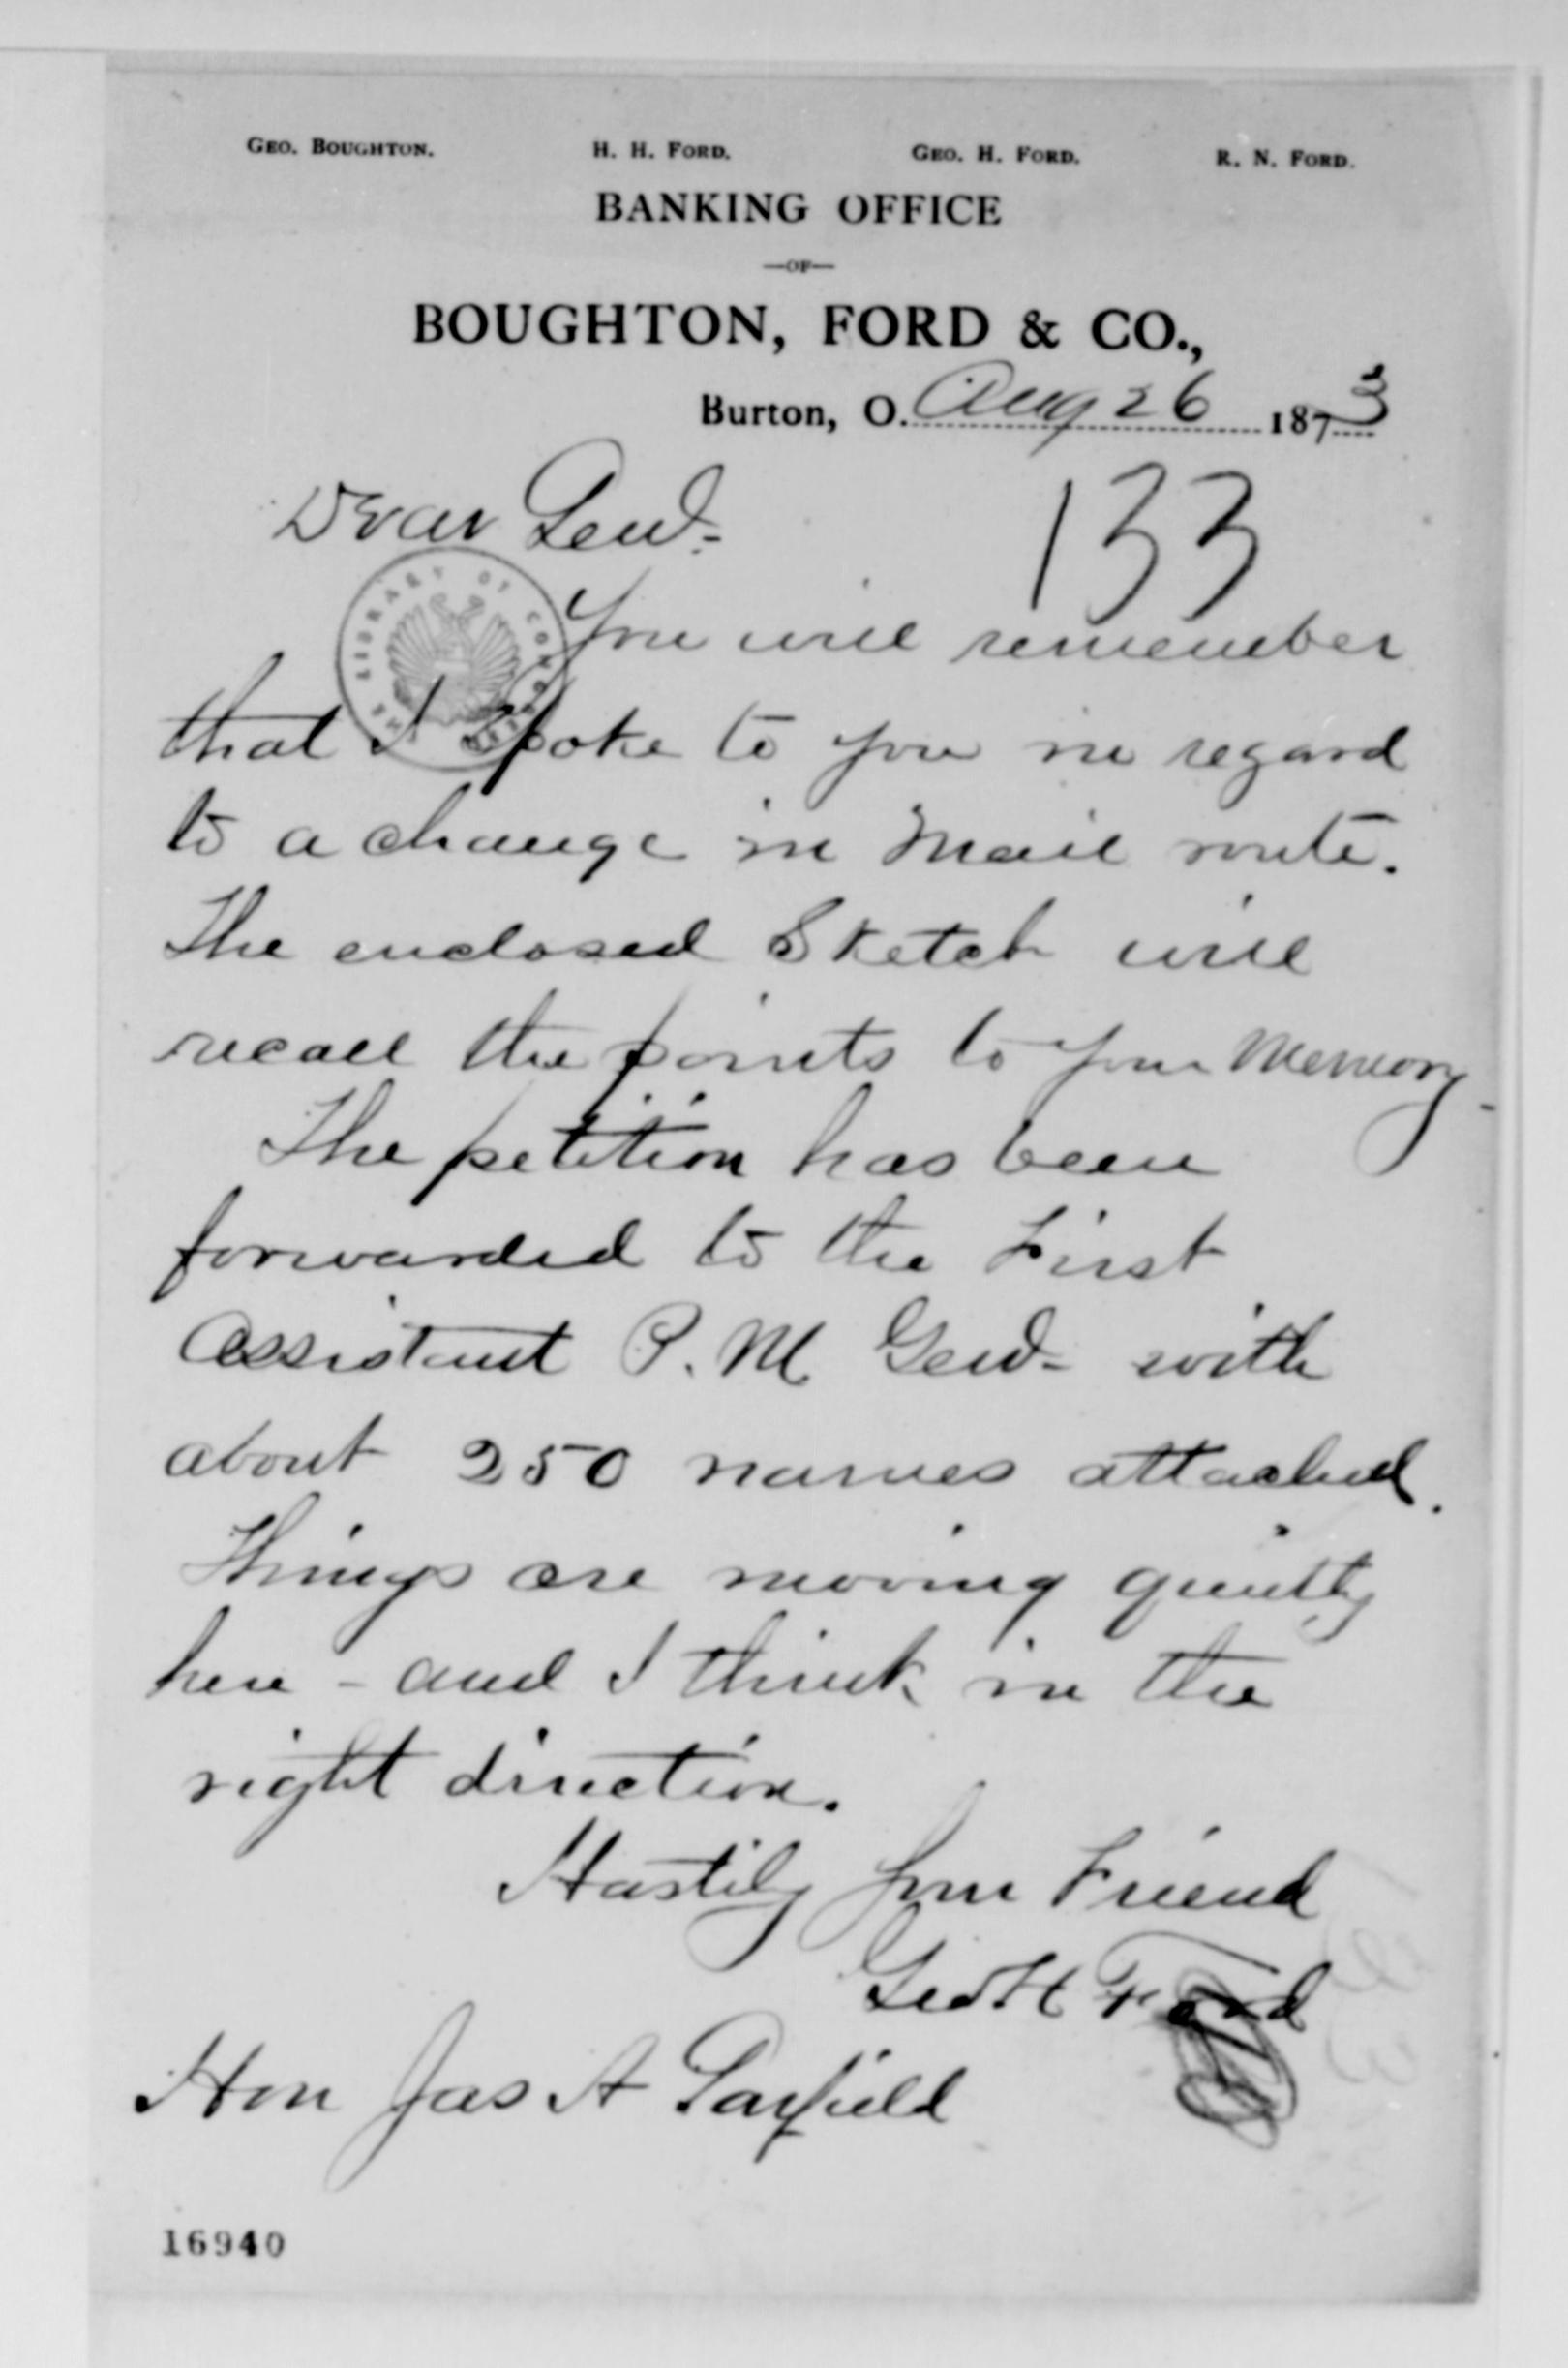 GEO. BOUGHTON. H. H. FORD. GEO. H. FORD. R. N. FORD.
BANKING OFFICE
—OF—
BOUGHTON, FORD & CO.,
Burton, O. Aug 26 1873
133
Dear Genl-
THE LIBRARY OF CONGRESS
You will remember
that I spoke to you in regard
to a change in Mail route.
The enclosed Sketch will
recall the points to your Memory-
The petition has been
forwarded to the First
Assistant P. M Genl- with
about 250 names attached.
Things are moving quietly
here - and I think in the
right direction.
Hastily Your Friend
Geo H Ford
Hon Jas A Garfield
16940